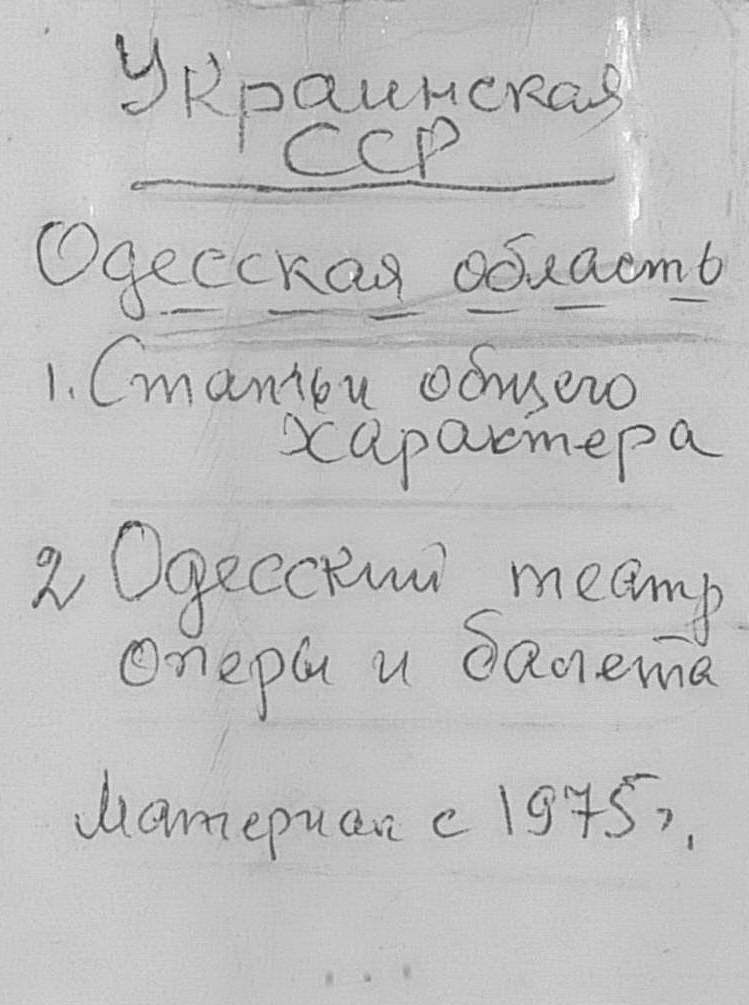 Украинская
ССР
Одесская область
1. Статьи общего
характера
2 Одесский театр
оперы и балета
Материал с 1975 г.